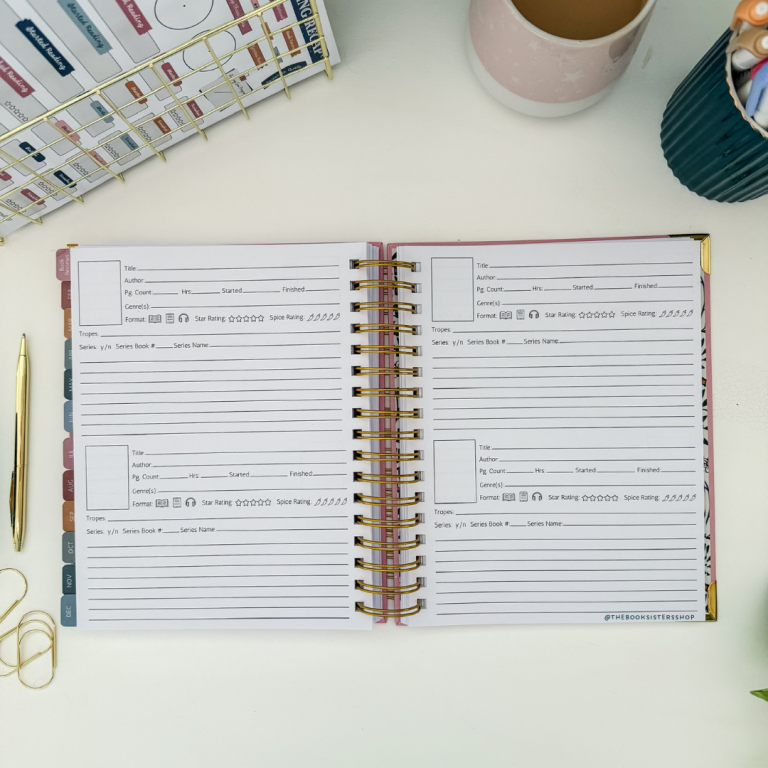 Started Reading
Started Reading
Reading
ING RECAP
Title:
Author:
Pg. Count: Hrs: Started: Finished:
Genre(s):
Format: Star Rating: Spice Rating:
Tropes:
Series: y/n Series Book #: Series Name:
Title:
Author:
Pg. Count: Hrs: Started: Finished:
Genre(s):
Format: Star Rating: Spice Rating:
Tropes:
Series: y/n Series Book #: Series Name:
OCT
NOV
DEC
Title:
Author:
Pg. Count: Hrs: Started: Finished:
Genre(s):
Format: Star Rating: Spice Rating:
Tropes:
Series: y/n Series Book #: Series Name:
Title:
Author:
Pg. Count: Hrs: Started: Finished:
Genre(s):
Format: Star Rating: Spice Rating:
Tropes:
Series: y/n Series Book #: Series Name:
@THEBOOKSISTERSSHOP